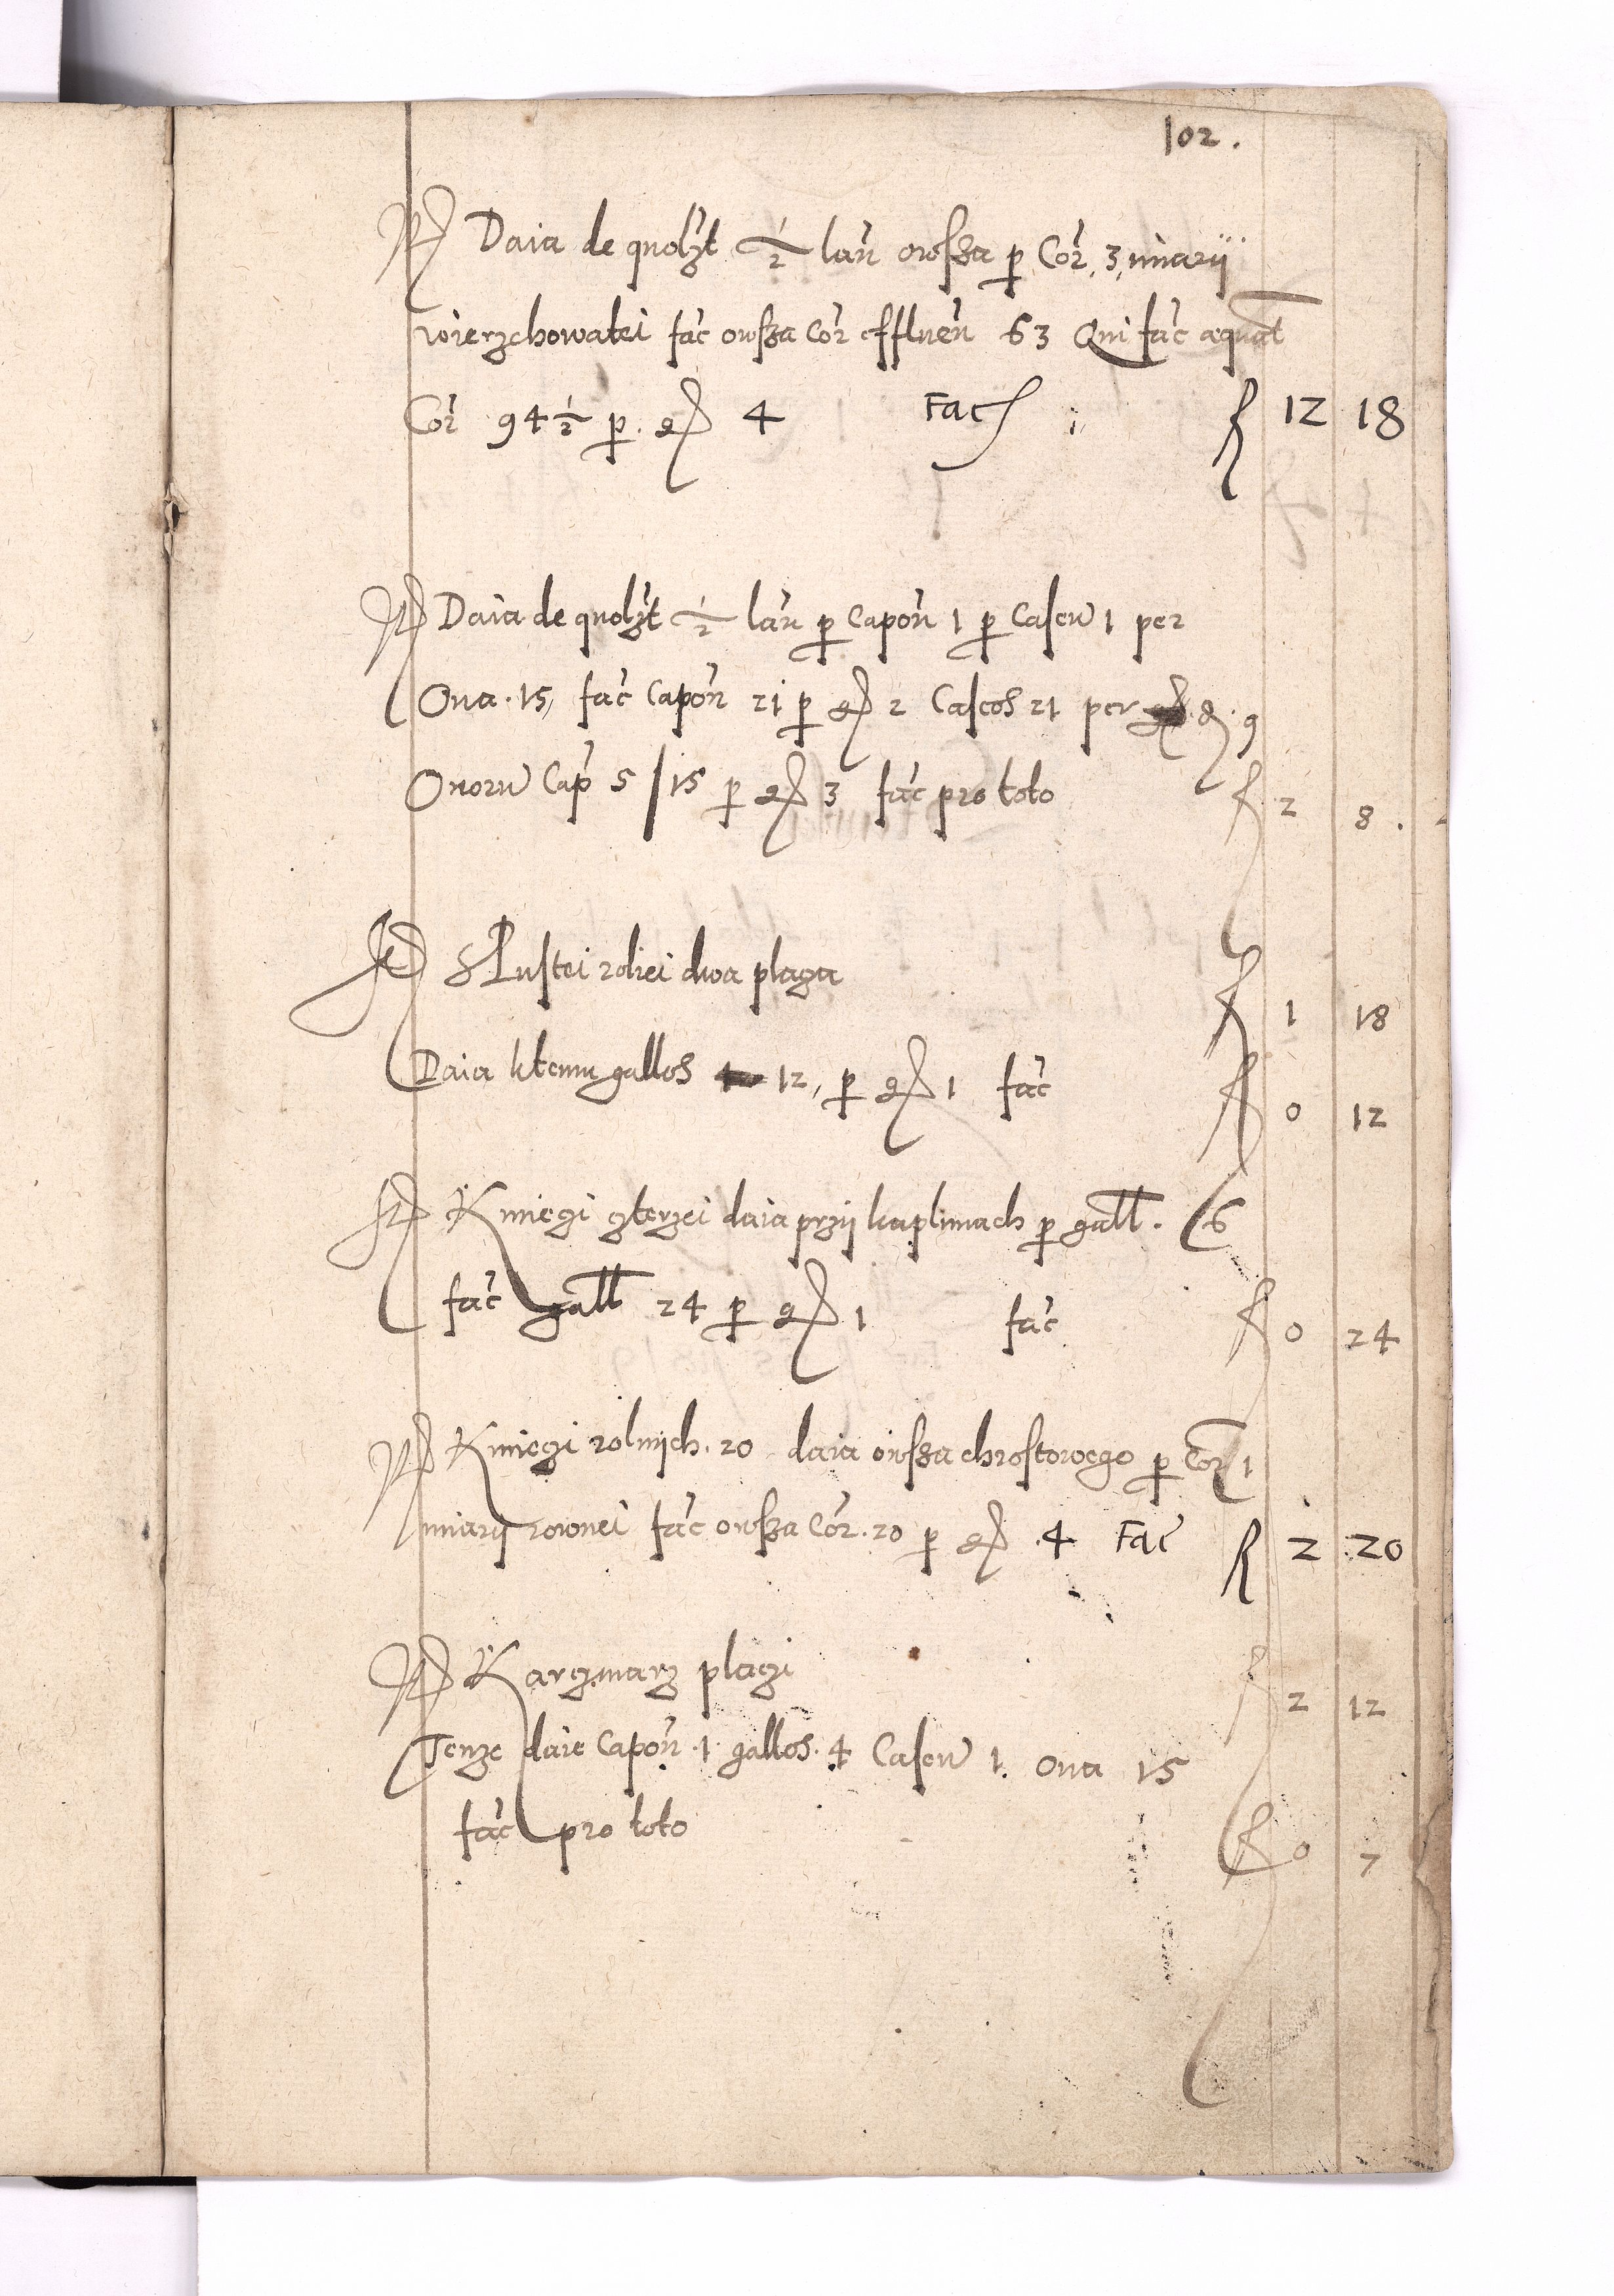 102.
Jtt Daia de quolzt ½ lan̄ owssa p Cor̄, 3, miarÿ
wierzchowatei fac̄ owsza Cor̄ effluen̄ 63 Qui fac̄ æquat̄
Cor̄ 94 ½ p. gr 4 Fac f 12 18
Jtt Daia de quolzt ½ lan̄ p Capon̄ 1 p Caseū 1 per
Oua. 15, fac̄ Capon̄ 21 p gr 2 Caseos 21 per d. 9
Ouorū Cap̄ 5 / 15 p gr 3 fac̄ pro toto f 2 8.
Jtt SPustei roliei dwa płaga f 1 18
Daia ktemu gallos 12, p gr 1 fac̄ f 0 12
Jtt Kmiegi gterzei daia przij kaplunach p gall. 6
fac̄ gall 24 p gr 1 fac̄ f 0 24
Jtt Kmiegi rolnijch. 20 daia owssa chrostowego p Cor̄ 1
miarij rownei fac̄ owsza Cor̄. 20 p gr .4 Fac̄ f 2 .20
Jtt Kargmarz plagi f 2 12
Tenze daie Capon̄ .1. gallos. 4 Caseū 1. Oua 15
fac̄ pro toto f 0 7